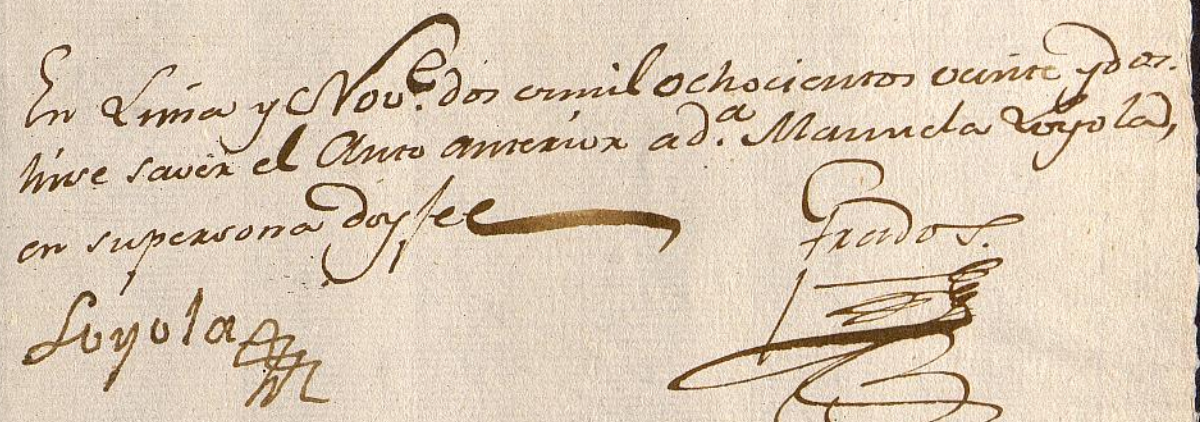 En Lima y Nov.e dos e mil ochocientos veinte y dos.
hise saver el Auto anterior a d.a Manuela Loyola,
en su persona doy fee
Grados.
Loyola